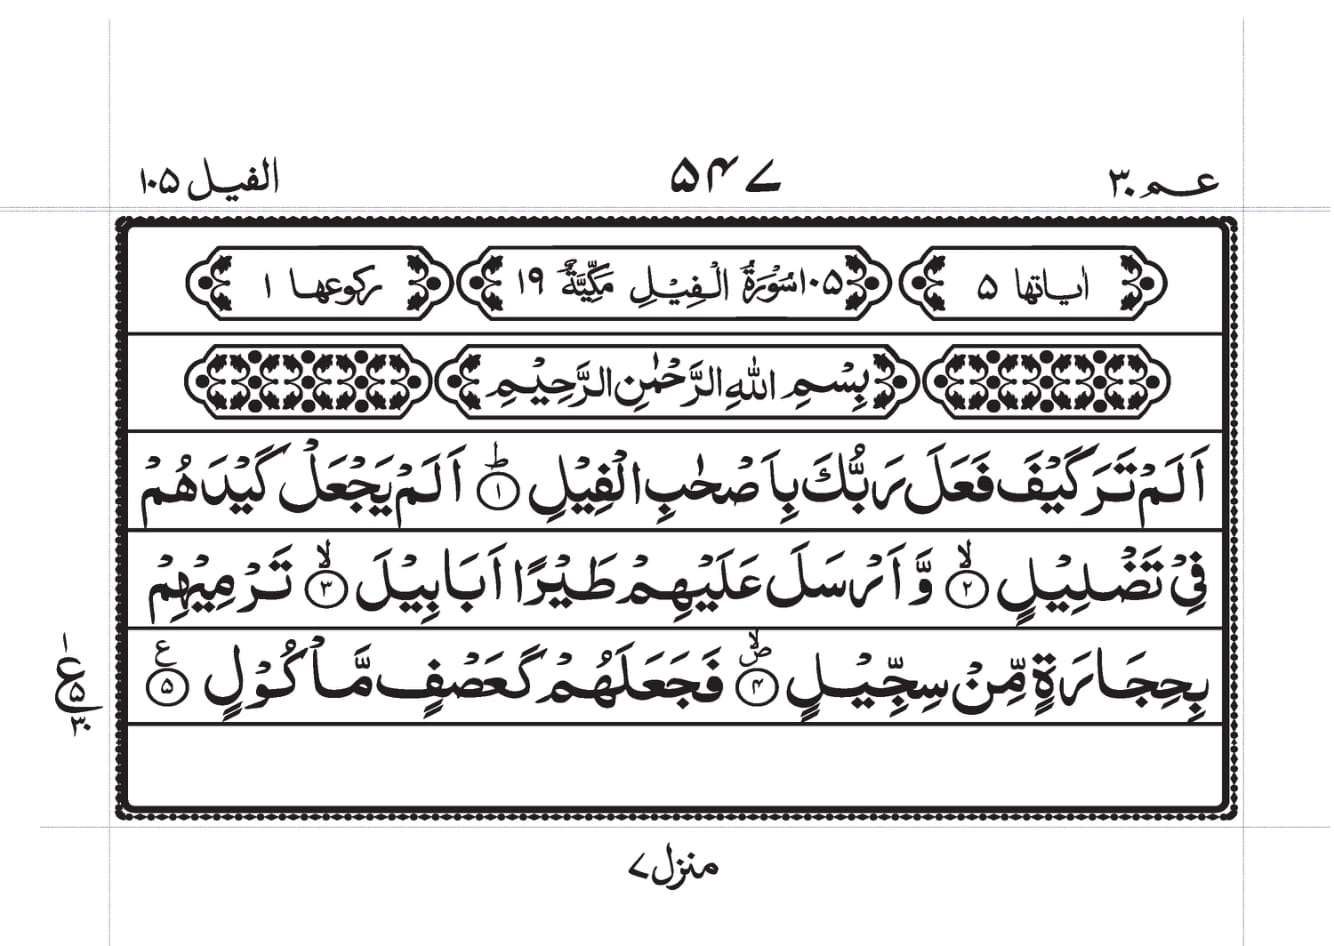 عـم ٣٠ ۵۴۷ الفيل ١٠۵
اٰياتها ۵ ١٠۵ سُوْرَةُ الْفِيْلِ مَكِّيَّةٌ ١٩ ركوعها ١
بِسْمِ اللهِ الرَّحْمٰنِ الرَّحِيْمِ
اَلَمْ تَرَ كَيْفَ فَعَلَ رَبُّكَ بِاَصْحٰبِ الْفِيْلِ ؕ ١ اَلَمْ يَجْعَلْ كَيْدَهُمْ
فِيْ تَضْلِيْلٍ ۙ ٢ وَّ اَرْسَلَ عَلَيْهِمْ طَيْرًا اَبَابِيْلَ ۙ ٣ تَرْمِيْهِمْ
بِحِجَارَةٍ مِّنْ سِجِّيْلٍ ۪ۙ ۴ فَجَعَلَهُمْ كَعَصْفٍ مَّاْكُوْلٍ ۵ ع
١
ع
۵
٣٠
منزل ٧